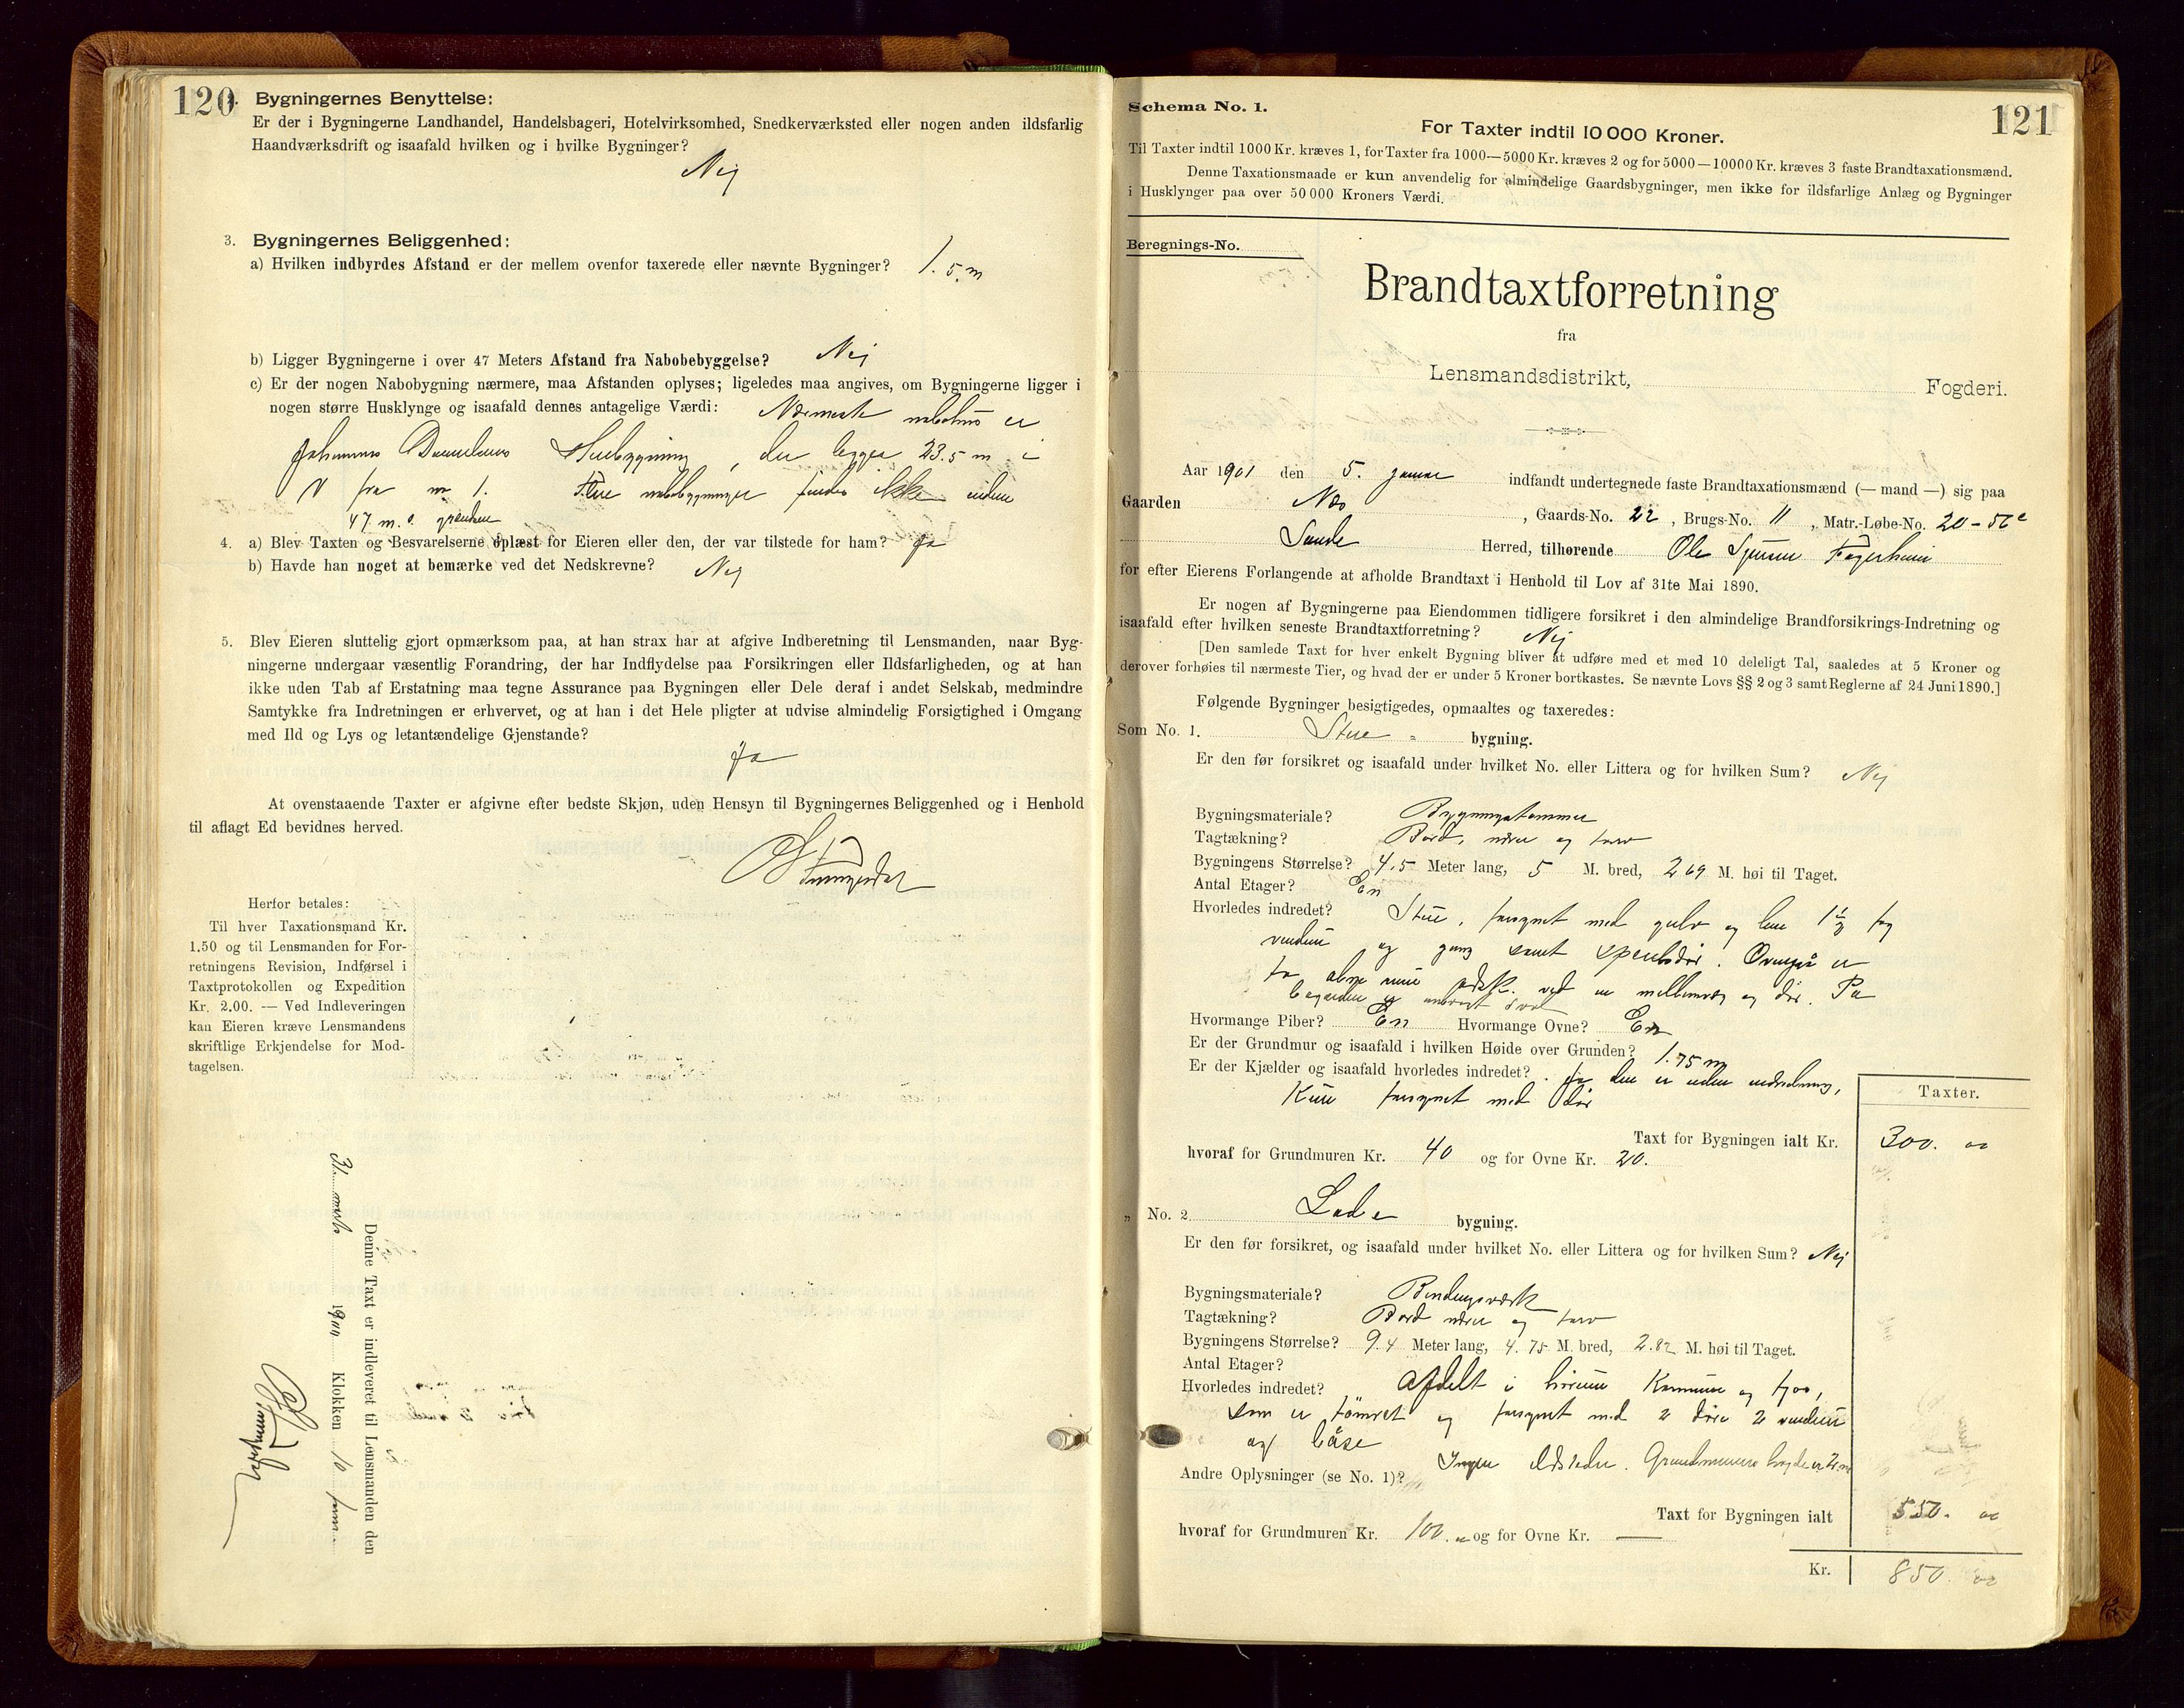 120
Bygningernes Benyttelse:
Er der i Bygningerne Landhandel, Handelsbageri, Hotelvirksomhed, Snedkerværksted eller nogen anden ildsfarlig
Haandværksdrift og isaafald hvilken og i hvilke Bygninger?
Nej
3. Bygningernes Beliggenhed:
a) Hvilken indbyrdes Afstand er der mellem ovenfor taxerede eller nævnte Bygninger? 1.5 m
b) Ligger Bygningerne i over 47 Meters Afstand fra Nabobebyggelse? Nej
c) Er der nogen Nabobygning nærmere, maa Afstanden oplyses; ligeledes maa angives, om Bygningerne ligger i
nogen større Husklynge og isaafald dennes antagelige Værdi: Nærmeste nabohus er
Johannes Stuebygning, der ligger 23.5 m i
N fra no 1. Flere nabobygninger findes ikke inden
47 m.s grændse
4. a) Blev Taxten og Besvarelserne oplæst for Eieren eller den, der var tilstede for ham? Ja
b) Havde han noget at bemærke ved det Nedskrevne? Nej
5. Blev Eieren sluttelig gjort opmærksom paa, at han strax har at afgive Indberetning til Lensmanden, naar Byg-
ningerne undergaar væsentlig Forandring, der har Indflydelse paa Forsikringen eller Ildsfarligheden, og at han
ikke uden Tab af Erstatning maa tegne Assurance paa Bygningen eller Dele deraf i andet Selskab, medmindre
Samtykke fra Indretningen er erhvervet, og at han i det Hele pligter at udvise almindelig Forsigtighed i Omgang
med Ild og Lys og letantændelige Gjenstande?
Ja
At ovenstaaende Taxter er afgivne efter bedste Skjøn, uden Hensyn til Bygningernes Beliggenhed og i Henhold
til aflagt Ed bevidnes herved.
Herfor betales:
Til hver Taxationsmand Kr.
1.50 og til Lensmanden for For-
retningens Revision, Indførsel i
Taxtprotokollen og Expedition
Kr. 2.00. — Ved Indleveringen
kan Eieren kræve Lensmandens
skriftlige Erkjendelse for Mod-
tagelsen.
Denne Taxt er indleveret til Lensmanden den
31 marts 1901 Klokken 10 form.
121
Schema No. 1.
For Taxter indtil 10 000 Kroner.
Til Taxter indtil 1000 Kr. kræves 1, for Taxter fra 1000—5000 Kr. kræves 2 og for 5000—10000 Kr. kræves 3 faste Brandtaxationsmænd.
Denne Taxationsmaade er kun anvendelig for almindelige Gaardsbygninger, men ikke for ildsfarlige Anlæg og Bygninger
i Husklynger paa over 50 000 Kroners Værdi.
Beregnings-No.
Brandtaxtforretning
fra
Lensmandsdistrikt, Fogderi.
Aar 1901 den 5. januar indfandt undertegnede faste Brandtaxationsmænd (— mand —) sig paa
Gaarden Næs, Gaards-No. 22, Brugs-No. 11, Matr.-Løbe-No. 20 - 56c
Sande Herred, tilhørende Ole Fagerheim
for efter Eierens Forlangende at afholde Brandtaxt i Henhold til Lov af 31te Mai 1890.
Er nogen af Bygningerne paa Eiendommen tidligere forsikret i den almindelige Brandforsikrings-Indretning og
isaafald efter hvilken seneste Brandtaxtforretning? Nej
[Den samlede Taxt for hver enkelt Bygning bliver at udføre med et med 10 deleligt Tal, saaledes at 5 Kroner og
derover forhøies til nærmeste Tier, og hvad der er under 5 Kroner bortkastes. Se nævnte Lovs §§ 2 og 3 samt Reglerne af 24 Juni 1890.]
Følgende Bygninger besigtigedes, opmaaltes og taxeredes:
Som No. 1. Stue bygning.
Er den før forsikret og isaafald under hvilket No. eller Littera og for hvilken Sum? Nej
Bygningsmateriale? Bygningstømmer
Tagtækning? Bord, never og torv
Bygningens Størrelse? 4.5 Meter lang, 5 M. bred, 2.69 M. høi til Taget.
Antal Etager? En
Hvorledes indredet? Stue, forsynet med gulv og 1½ fag
vinduer og gang samt . Ovenpå er
to rum adsk. ved en mellemvæg og dør. På
Hvormange Piber? En Hvormange Ovne? En
Er der Grundmur og isaafald i hvilken Høide over Grunden? 1.75 m
Er der Kjælder og isaafald hvorledes indredet? Ja den er uden indredning,
Kun forsynet med dør
Taxter.
Taxt for Bygningen ialt Kr. 300. 00
hvoraf for Grundmuren Kr. 40 og for Ovne Kr. 20.
" No. 2 Lade bygning.
Er den før forsikret, og isaafald under hvilket No. eller Littera og for hvilken Sum? Nej
Bygningsmateriale? Bindingsværk
Tagtækning? Bord never og torv
Bygningens Størrelse? 9.4 Meter lang, 4.75 M. bred, 2.82 M. høi til Taget.
Antal Etager?
Hvorledes indredet? Afdelt i og fjøs,
som er tømret og forsynet med 2 døre 2 vinduer
og båse
Andre Oplysninger (se No. 1)? Ingen ildsteder. Grundmurens høyde er 2 m
Taxt for Bygningen ialt 550. 00
hvoraf for Grundmuren Kr. 100. og for Ovne Kr. —
Kr. 850. 00